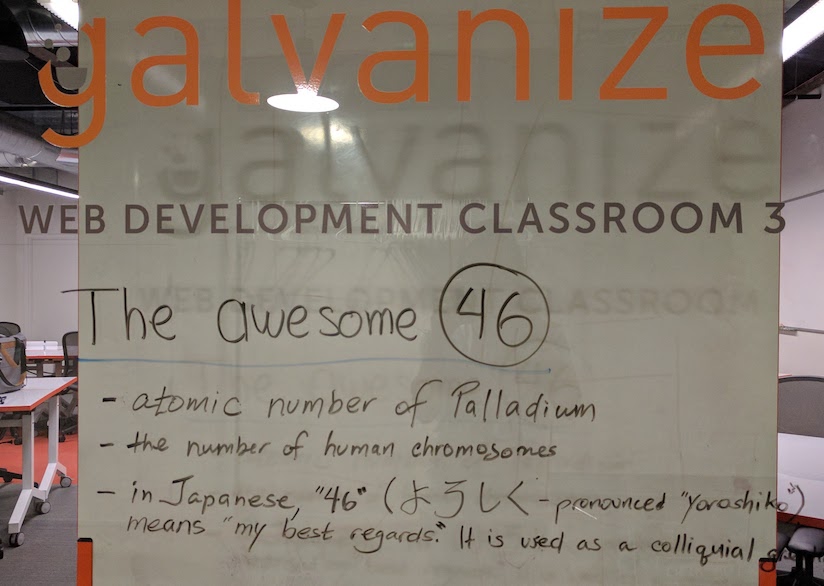 galvanize
WEB DEVELOPMENT CLASSROOM 3
The awesome 46
- atomic number of Palladium
- the number of human chromosomes
- in Japanese, "46" (よろしく - pronounced "Yoroshiko")
means "my best regards." It is used as a colliquial